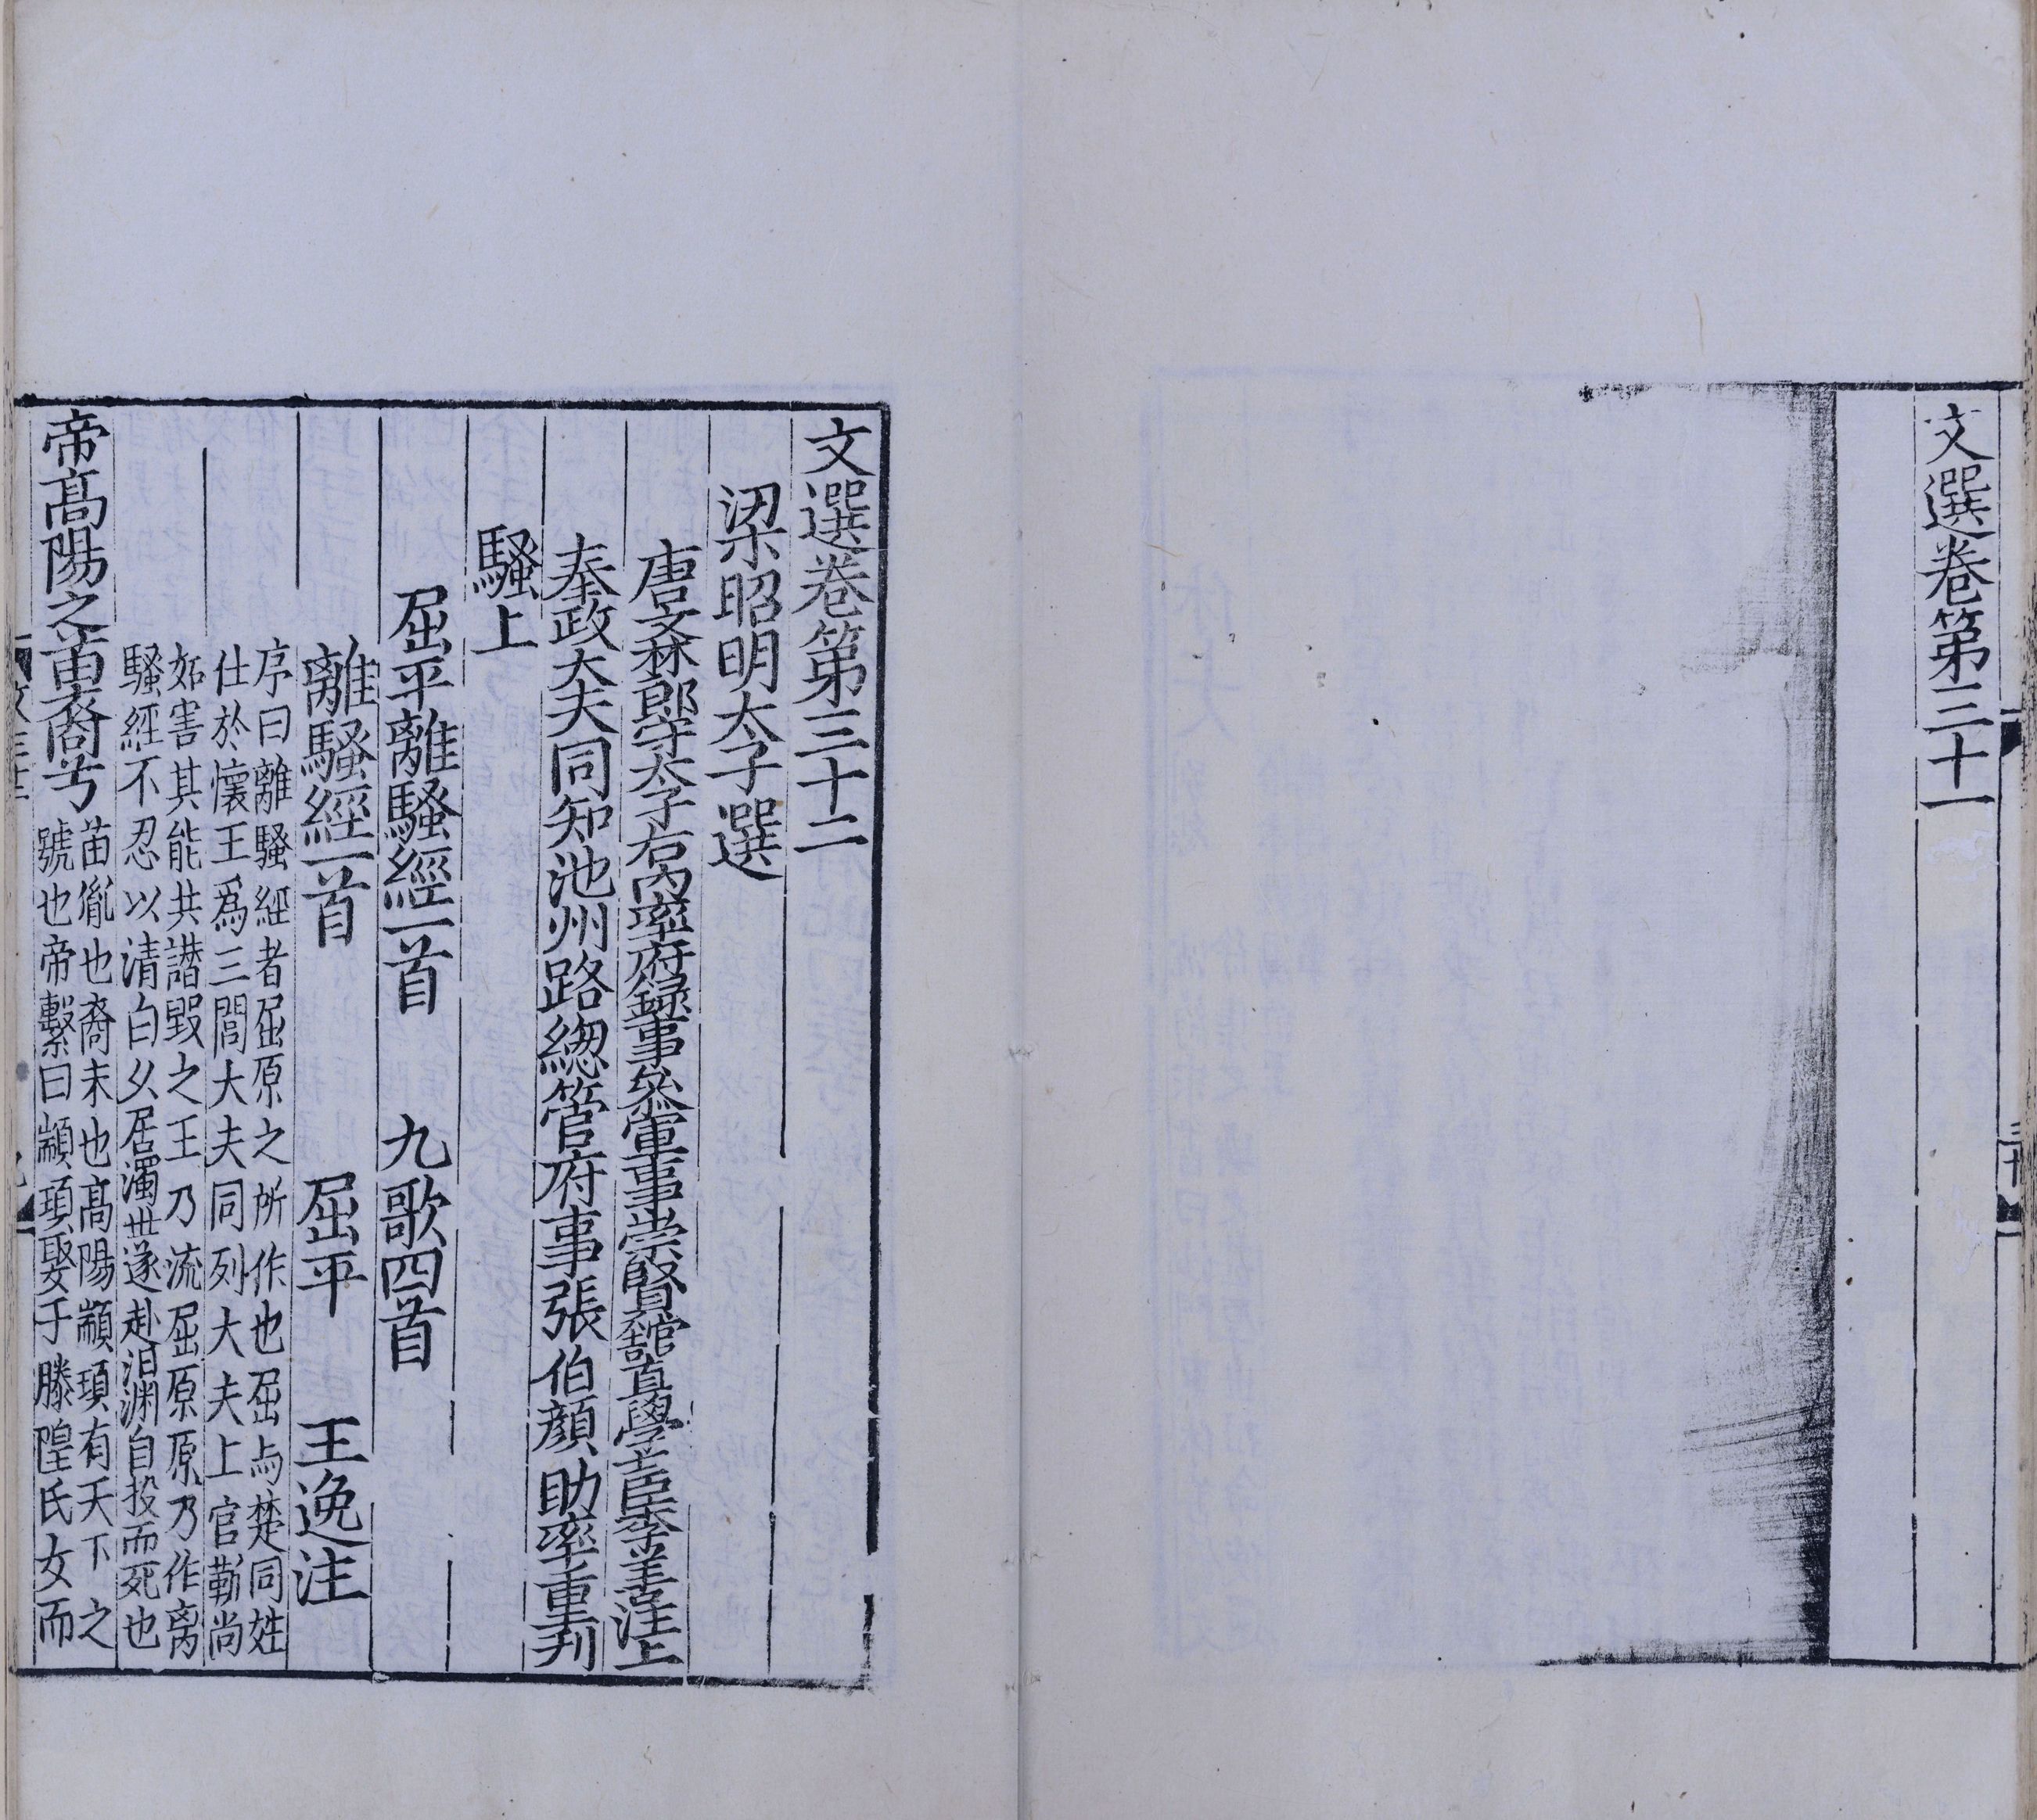 文選卷第三十一
文選卷第三十二
梁昭明太子選
唐文林郎守太子右內率府錄事叅軍事崇賢舘直學士臣李善注上
奉政大夫同知池州路緫管府事張伯顔助率重刋
騷上
屈平離騷經一首　九歌四首
離騷經一首　屈平　王逸注
序曰離騷經者屈原之所作也屈与楚同姓
仕於懷王爲三閭大夫同列大夫上官靳尚
妬害其能共譖毀之王乃流屈原原乃作离
騷經不忍以清白久居濁世遂赴汨渊自投而死也
帝髙陽之苗裔兮
苗胤也裔末也髙陽顓頊有天下之
號也帝繫曰顓頊娶于滕隍氏女而